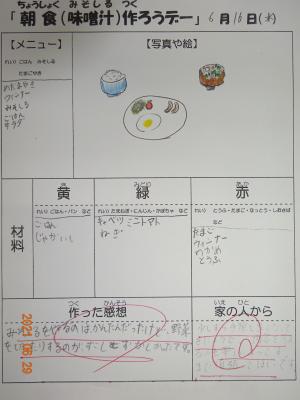 ちょうしょく みそしる つく
「朝食(味噌汁)作ろうデー」6月16日(水)
【メニュー】
【写真や絵】
れい) ごはん みそしる
たまごやき
めだまやき
ウィンナー
みそしる
ごはん
サラダ
き
黄
みどり
緑
あか
赤
れい) ごはん・パン など
れい) たまねぎ・にんじん・かぼちゃ など
れい) とうふ・たまご・なっとう・しおさば など
材料
ごはん
じゃがいも
キャベツ ミニトマト
ねぎ
たまご
ウィンナー
わかめ
とうふ
つく かんそう
作った感想
いえ ひと
家の人から
のは、かんたんだったけど、野菜
をいためたりするのが、すこしむずかしかったです。
2021 06 29